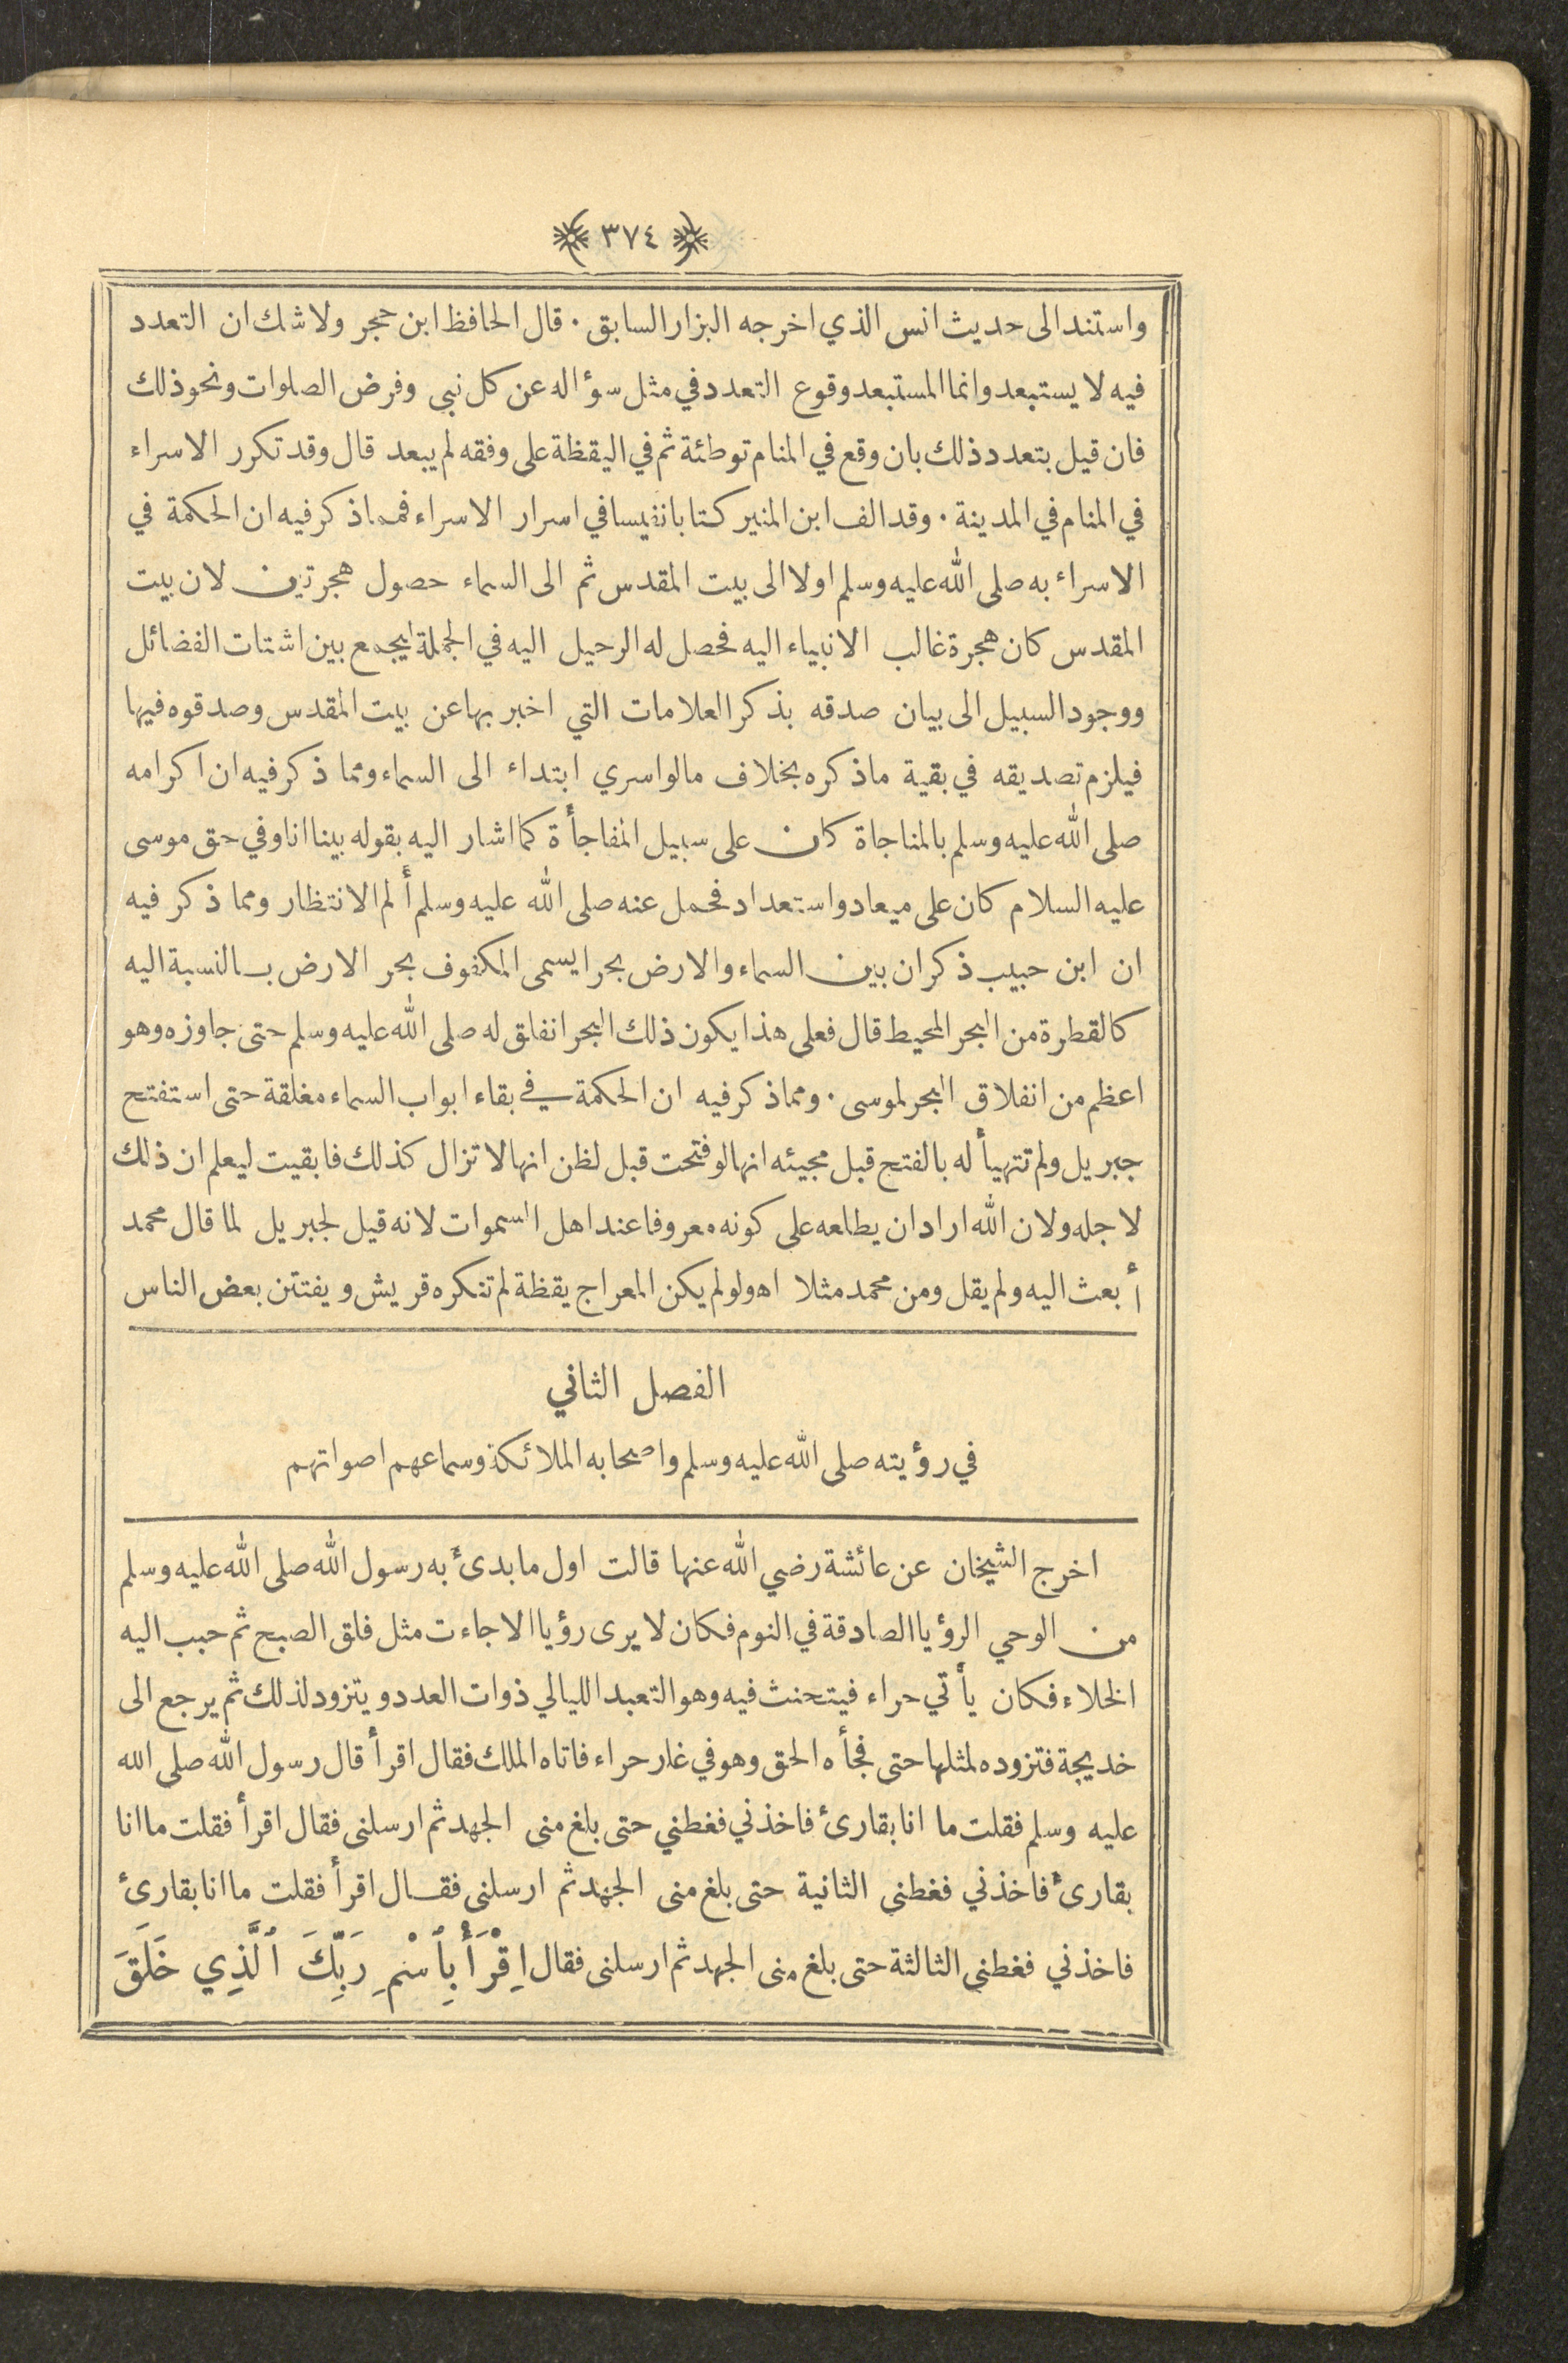 ﴿ ٣٧٤ ﴾
واستند الى حديث انس الذي اخرجه البزار السابق ٠ قال الحافظ ابن حجر ولا شك ان التعدد
فيه لا يستبعد وانما المستبعد وقوع التعدد في مثل سؤاله عن كل نبي وفرض الصلوات ونحو ذلك
فان قيل بتعدد ذلك بان وقع في المنام توطئة ثم في اليقظة على وفقه لم يبعد قال وقد تكرر الاسراء
في المنام في المدينة ٠ وقد الف ابن المنير كتابا نفيسا في اسرار الاسراء فمما ذكر فيه ان الحكمة في
الاسراء به صلى الله عليه وسلم اولا الى بيت المقدس ثم الى السماء حصول هجرتين لان بيت
المقدس كان هجرة غالب الانبياء اليه فحصل له الرحيل اليه في الجملة ليجمع بين اشتات الفضائل
ووجود السبيل الى بيان صدقه بذكر العلامات التي اخبر بها عن بيت المقدس وصدقوه فيها
فيلزم تصديقه في بقية ما ذكره بخلاف ما لو اسري ابتداء الى السماء ومما ذكر فيه ان اكرامه
صلى الله عليه وسلم بالمناجاة كان على سبيل المفاجأة كما اشار اليه بقوله بينا انا وفي حق موسى
عليه السلام كان على ميعاد واستعداد فحمل عنه صلى الله عليه وسلم ألم الانتظار ومما ذكر فيه
ان ابن حبيب ذكر ان بين السماء والارض بحرا يسمى المكفوف بحر الارض بالنسبة اليه
كالقطرة من البحر المحيط قال فعلى هذا يكون ذلك البحر انفلق له صلى الله عليه وسلم حتى جاوزه وهو
اعظم من انفلاق البحر لموسى ٠ ومما ذكر فيه ان الحكمة في بقاء ابواب السماء مغلقة حتى استفتح
جبريل ولم تتهيأ له بالفتح قبل مجيئه انها لو فتحت قبل لظن انها لا تزال كذلك فابقيت ليعلم ان ذلك
لاجله ولان الله اراد ان يطلعه على كونه معروفا عند اهل السموات لانه قيل لجبريل لما قال محمد
أبعث اليه ولم يقل ومن محمد مثلا اه ولو لم يكن المعراج يقظة لم تنكره قريش ويفتتن بعض الناس
الفصل الثاني
في رؤيته صلى الله عليه وسلم واصحابه الملائكة وسماعهم اصواتهم
اخرج الشيخان عن عائشة رضي الله عنها قالت اول ما بدئ به رسول الله صلى الله عليه وسلم
من الوحي الرؤيا الصادقة في النوم فكان لا يرى رؤيا الا جاءت مثل فلق الصبح ثم حبب اليه
الخلاء فكان يأتي حراء فيتحنث فيه وهو التعبد الليالي ذوات العدد ويتزود لذلك ثم يرجع الى
خديجة فتزوده لمثلها حتى فجأه الحق وهو في غار حراء فاتاه الملك فقال اقرأ قال رسول الله صلى الله
عليه وسلم فقلت ما انا بقارئ فاخذني فغطني حتى بلغ منى الجهد ثم ارسلنى فقال اقرأ فقلت ما انا
بقارئ فاخذني فغطنى الثانية حتى بلغ منى الجهد ثم ارسلنى فقال اقرأ فقلت ما انا بقارئ
فاخذني فغطنى الثالثة حتى بلغ منى الجهد ثم ارسلنى فقال اِقْرَأْ بِٱسْمِ رَبِّكَ ٱلَّذِي خَلَقَ